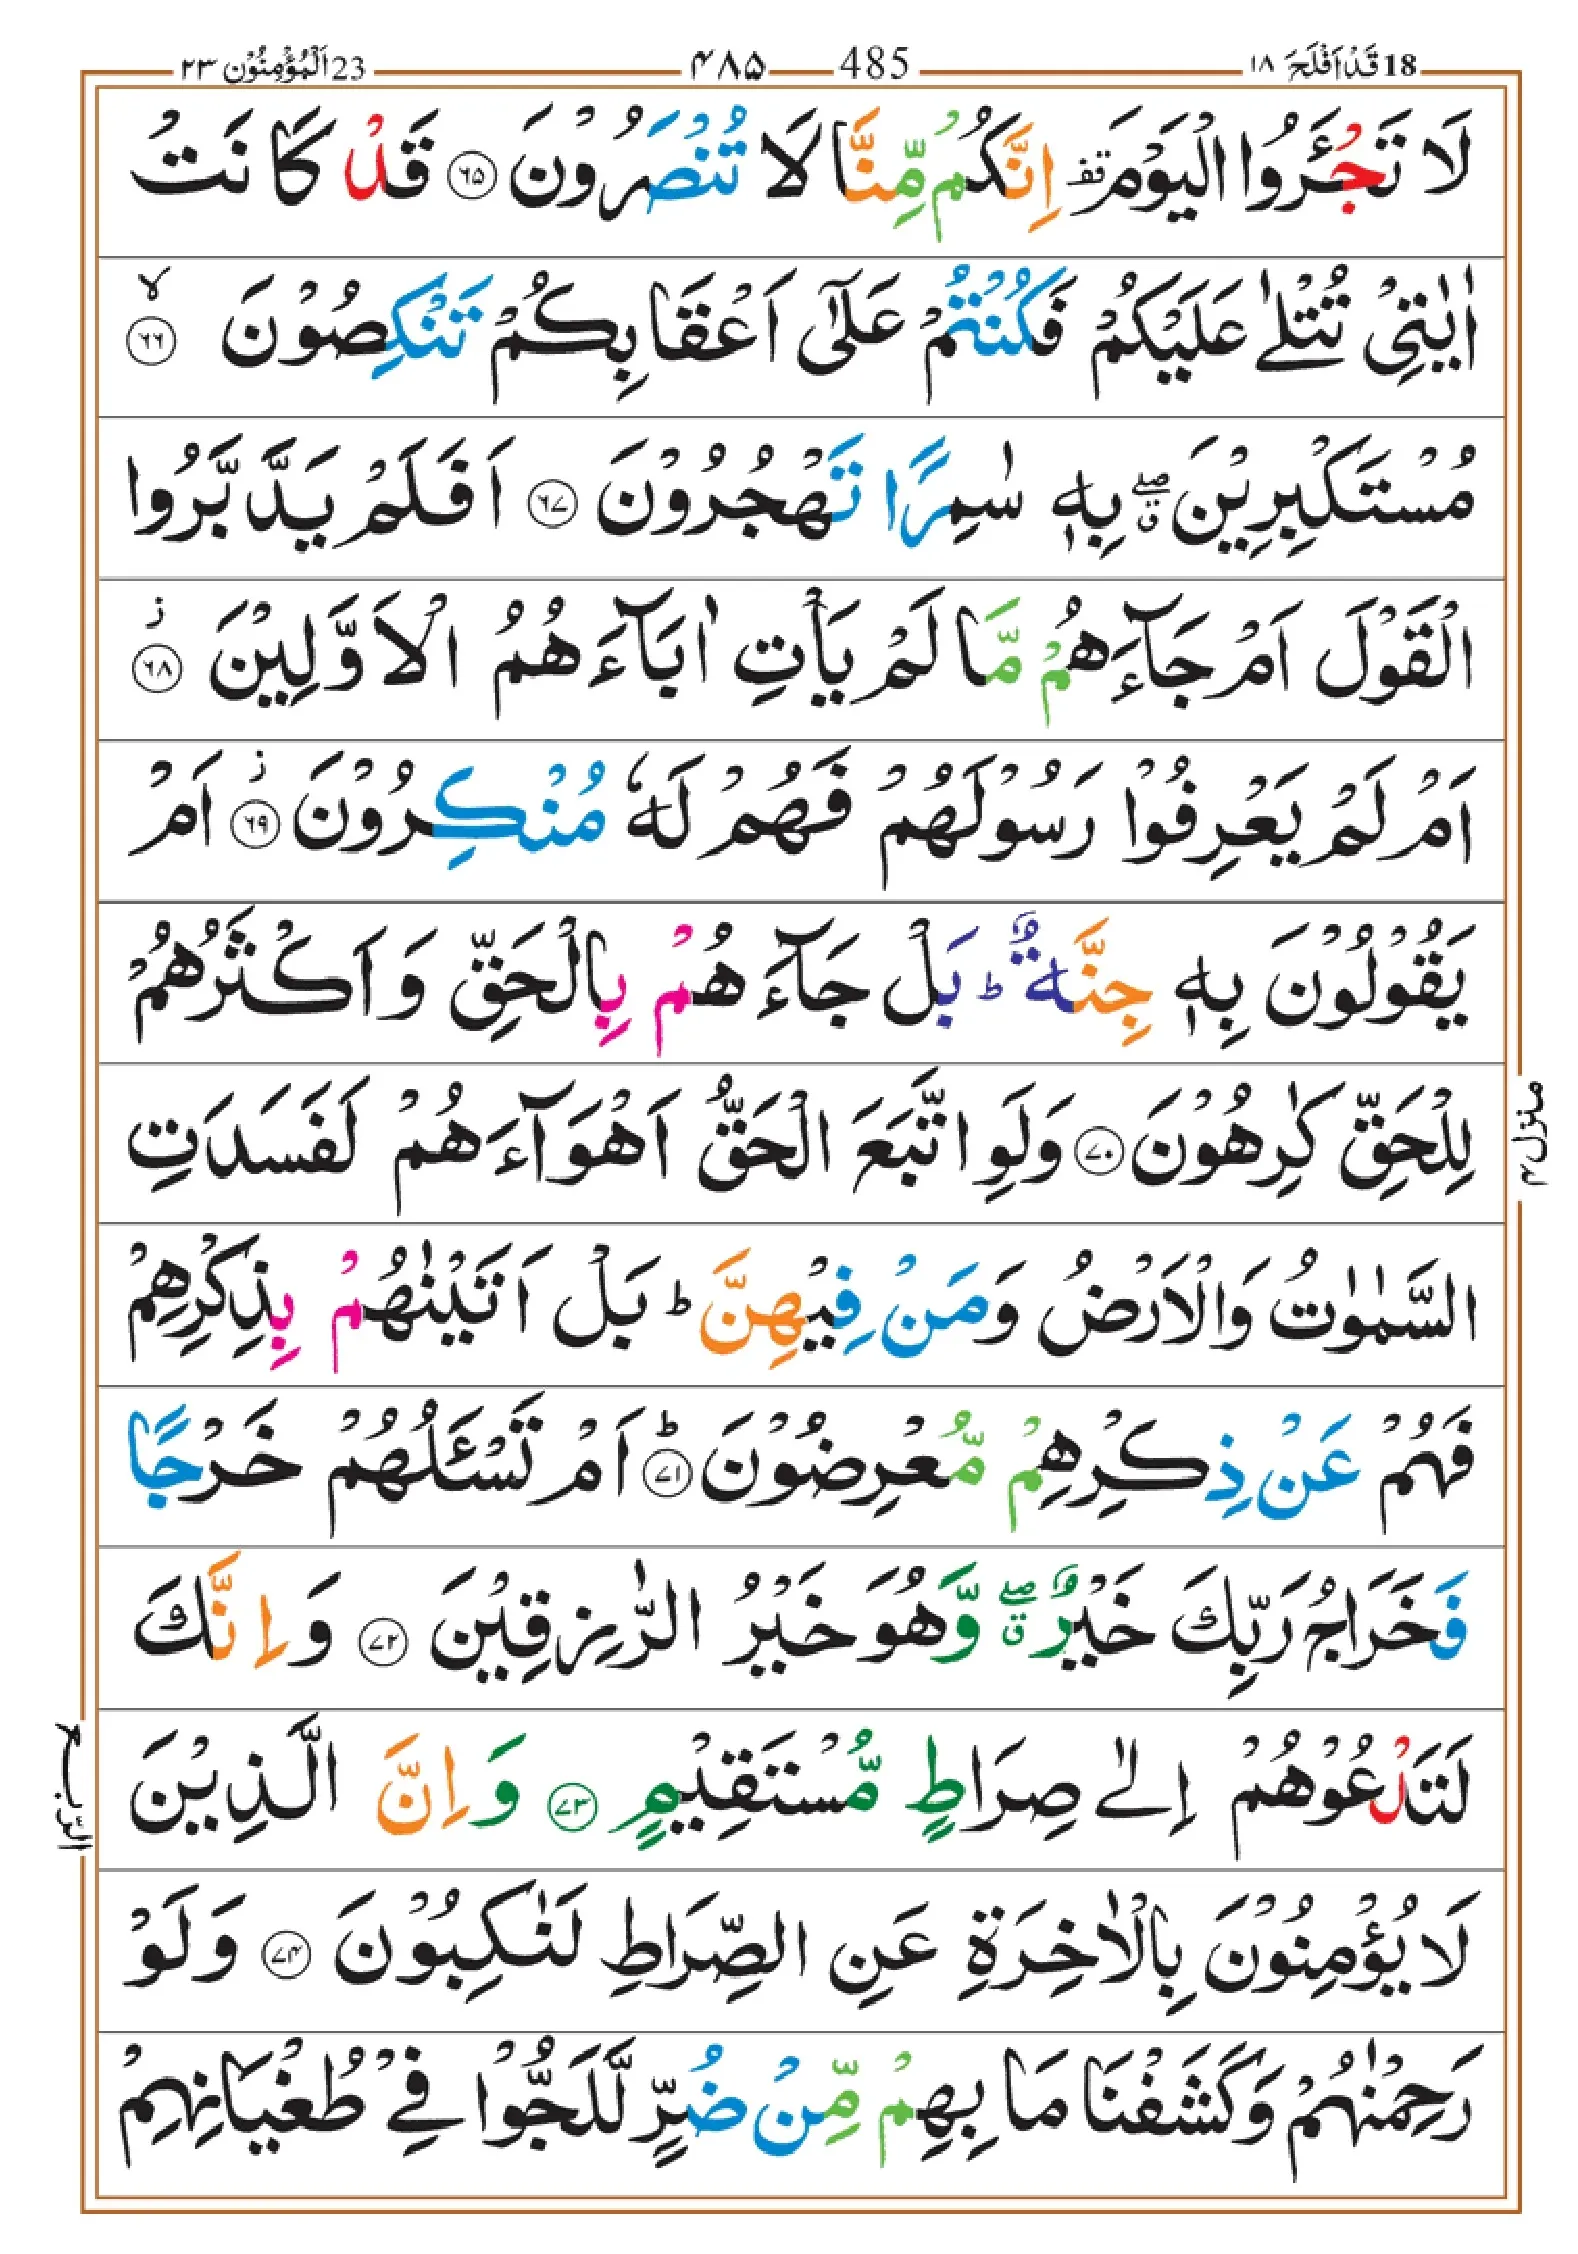 18 قَدْ اَفْلَحَ ۱۸ 485 ۴۸۵ 23 اَلْمُؤْمِنُوْن ۲۳
لَا تَجْـَٔرُوا الْيَوْمَ ࣞقف اِنَّكُمْ مِّنَّا لَا تُنْصَرُوْنَ ۶۵ قَدْ كَانَتْ
اٰيٰتِيْ تُتْلٰى عَلَيْكُمْ فَكُنْتُمْ عَلٰٓى اَعْقَابِكُمْ تَنْكِصُوْنَ ۙ ۶۶
مُسْتَكْبِرِيْنَ ۖق بِهٖ سٰمِرًا تَهْجُرُوْنَ ۶۷ اَفَلَمْ يَدَّبَّرُوا
الْقَوْلَ اَمْ جَآءَهُمْ مَّا لَمْ يَاْتِ اٰبَآءَهُمُ الْاَوَّلِيْنَ ز ۶۸
اَمْ لَمْ يَعْرِفُوْا رَسُوْلَهُمْ فَهُمْ لَهٗ مُنْكِرُوْنَ ز ۶۹ اَمْ
يَقُوْلُوْنَ بِهٖ جِنَّةٌ ؕ بَلْ جَآءَهُمْ بِالْحَقِّ وَاَكْثَرُهُمْ
لِلْحَقِّ كٰرِهُوْنَ ۷۰ وَلَوِ اتَّبَعَ الْحَقُّ اَهْوَآءَهُمْ لَفَسَدَتِ
السَّمٰوٰتُ وَالْاَرْضُ وَمَنْ فِيْهِنَّ ؕ بَلْ اَتَيْنٰهُمْ بِذِكْرِهِمْ
فَهُمْ عَنْ ذِكْرِهِمْ مُّعْرِضُوْنَ ؕ ۷۱ اَمْ تَسْـَٔلُهُمْ خَرْجًا
فَخَرَاجُ رَبِّكَ خَيْرٌ ۖق وَّهُوَ خَيْرُ الرّٰزِقِيْنَ ۷۲ وَاِنَّكَ
لَتَدْعُوْهُمْ اِلٰى صِرَاطٍ مُّسْتَقِيْمٍ ۷۳ وَاِنَّ الَّذِيْنَ
لَا يُؤْمِنُوْنَ بِالْاٰخِرَةِ عَنِ الصِّرَاطِ لَنٰكِبُوْنَ ۷۴ وَلَوْ
رَحِمْنٰهُمْ وَكَشَفْنَا مَا بِهِمْ مِّنْ ضُرٍّ لَّلَجُّوْا فِيْ طُغْيَانِهِمْ
منزل ۴
الربع